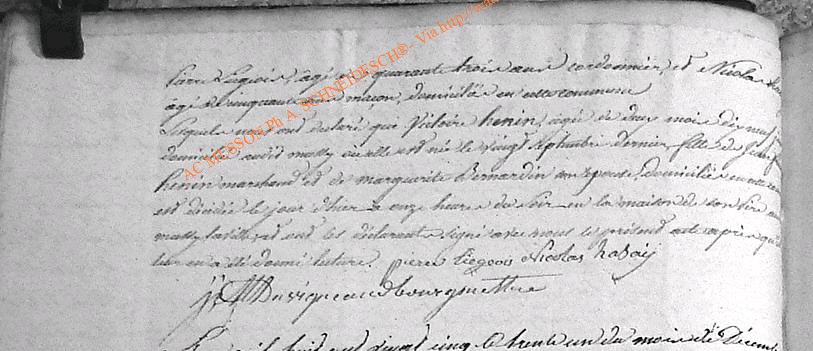 AC MESSON Ph A. SCHNEIDESCH® - Via http://
Pierre Liegeois, agé de quarante trois ans cordonnier, et Nicolas
agé de cinquante ans maçon, domiciliés en cette commune
Lesquels nous ont declaré que Victoire henin, agée de deux mois dix neuf j
domiciliée audit où elle est née le vingt Septembre dernier, fille de Jean
henin marchand et de marguerite Bernardin son epouse, domiciliés en cette
est décédée le jour d'hier a onze heures du soir en la maison de son Père
et ont les déclarants signé avec nous le présent acte après qu
leur en a été donné lecture. pierre liegeois Nicolas
bourgmettre
huit cent vingt cinq le trente un du mois de Décem